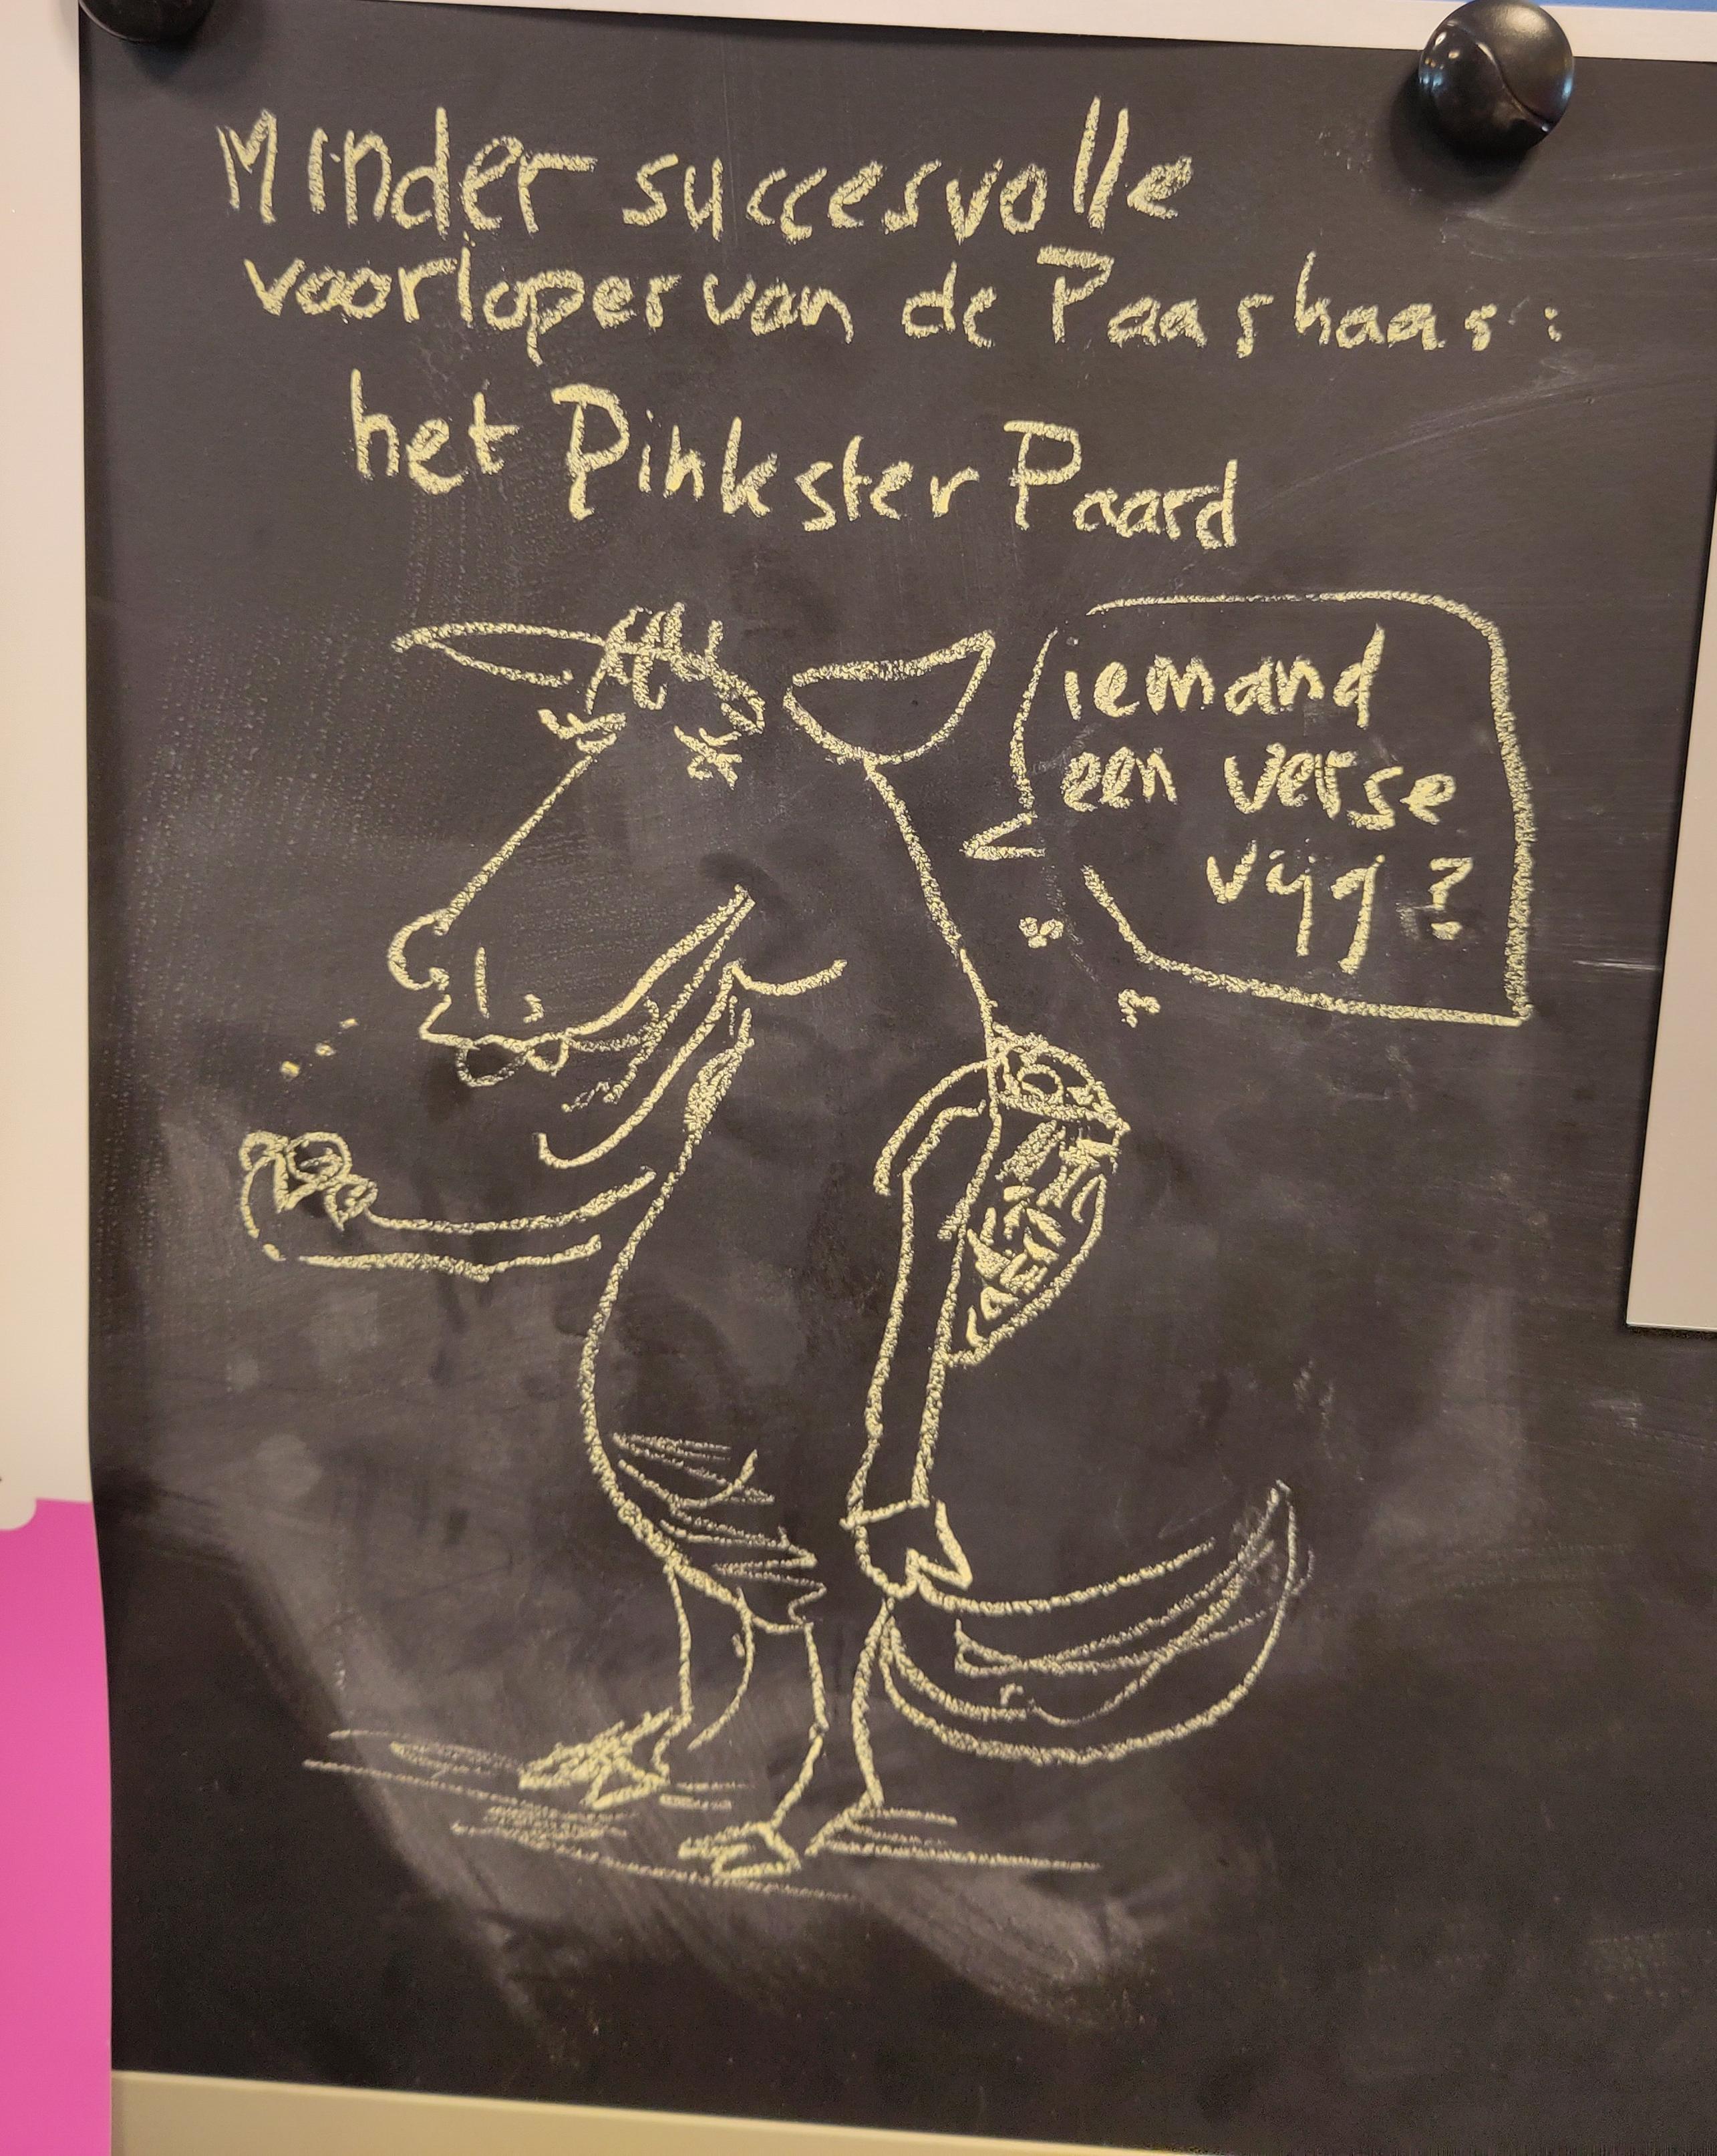 Minder succesvolle
voorloper van de Paashaas:
het Pinkster Paard
iemand
een verse
vijg?